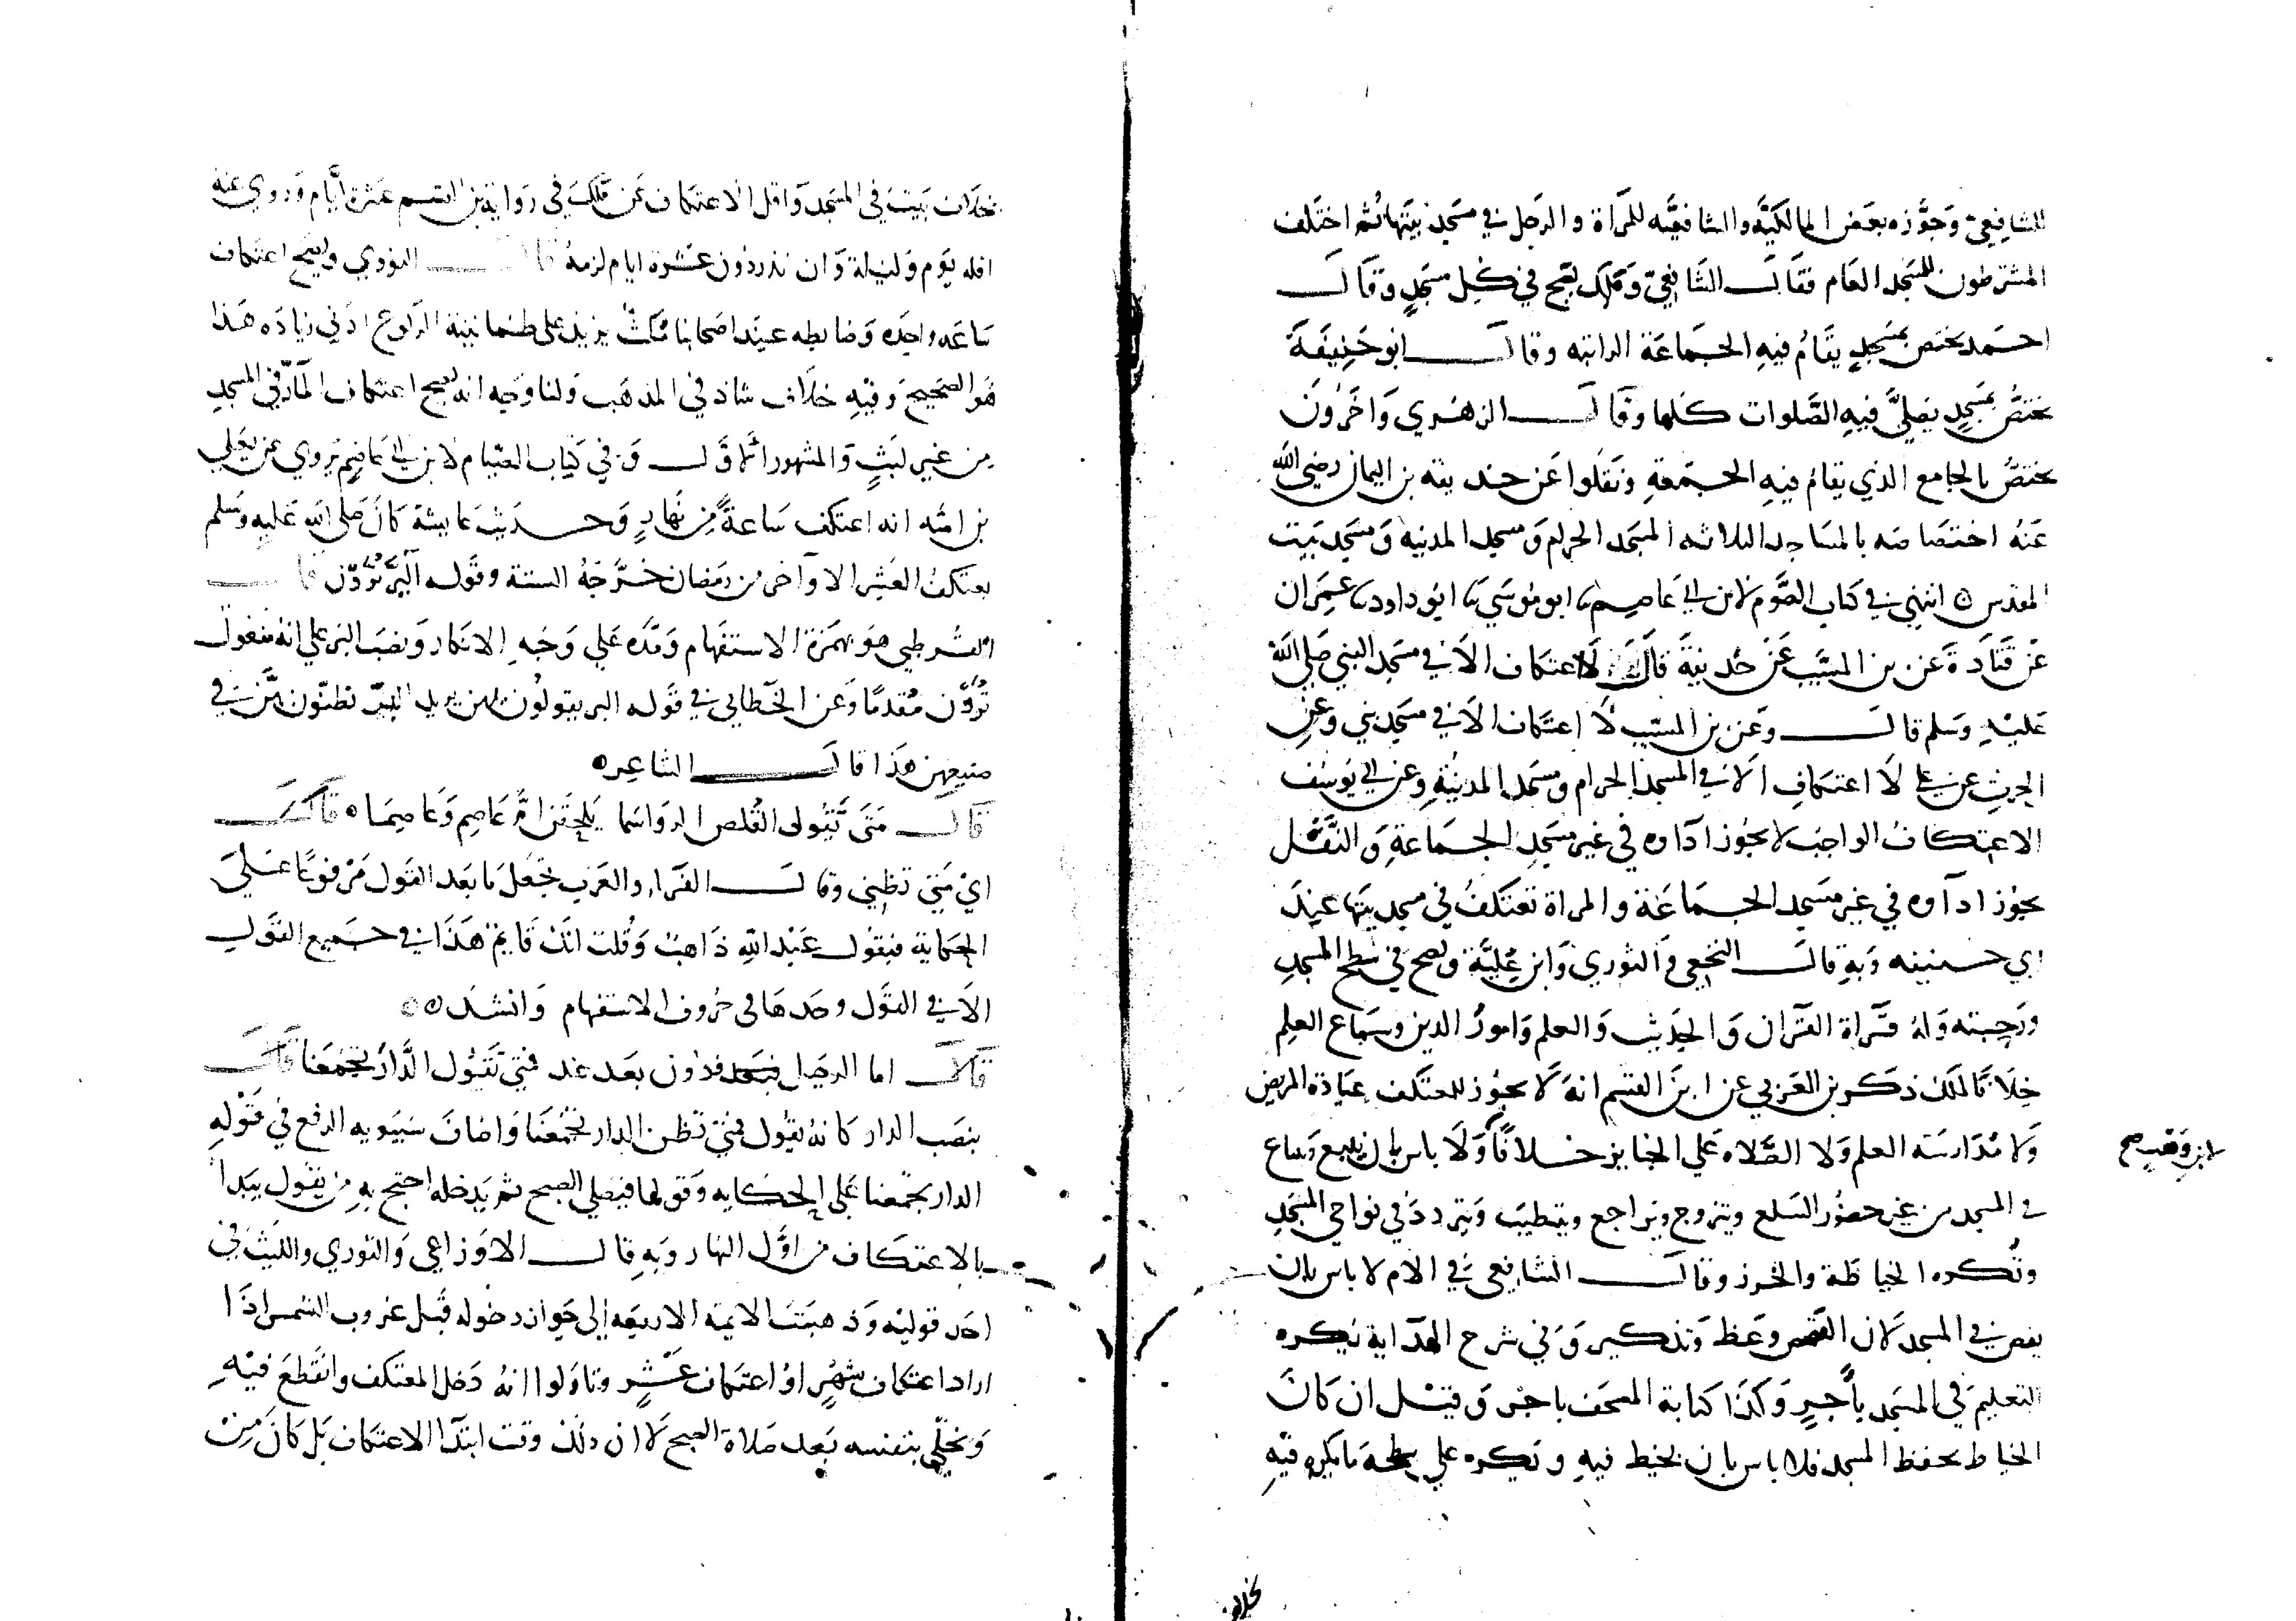 للشافعيّ وَجوَّزه بعَض المالكيَّة والشافعيَّه للمَراة والرجل في مسَجد بيَتها ثم اختَلف
المشترطون للمسَجد العَام فقَالَ الشَّافعيّ وَمَالك يَصح في كل مسَجدٍ وَقَالَ
احـمَد يختَصّ بمسَجدٍ يقَامُ فيهِ الجـمَاعَة الراتبه وقالَ ابو حَنِيفَة
يختصُّ بمسَجدٍ يصَليَّ فيهِ الصَّلوات كلها وقَالَ الزهري وَاخَرُونَ
يختصُّ بالجامع الذي يقامُ فيهِ الجـمَعَةِ ونَقَلُوا عَن حذيفه بن اليمان رضي الله
عَنهُ اختصَاصَه بالمسَاجد الثلاثه المسَجد الحرام وَمسجد المدينه وَمسَجد بَيت
المقدس ٥ انتهي في كتاب الصَّوم لابن ابي عَاصِم ثنا ابو مُوسَي ثنا ابُو داود ثنا عمِرَان
عَن قتَادَة عَن بن المسَيَّب عَن حُذيفة قاَلَ لَا اعتكاف الاَ في مسَجد النبي صَلي الله
عَليهِ وسَلم قالَ وَعَن بن المسَيّب لَا اعتكاف الاَ في مسَجد نبي وَعن
الحرث عن علي لَا اعتكاف الاَ في المسجد الحرام ومسَجد المدينَةِ وعن ابي يوسُف
الاعتكافُ الواجبَ لا يجُوز ادَآوه في غير مسَجد الجـمَاعةِ وَالنَّفَل
يجوُز ادآوه في غير مسَجد الجـمَاعَة والمراة تعتَكفُ في مسجد بيَتها عِندَ
ابي حـنيفه وَبهِ قالَ النخعي وَالثوري وَابن عُليَّة وتصح في سَطح المسَجدِ
ورَحِبته وَلهُ قـرَاة القرَان وَالحدَيثِ وَالعلم وَامورُ الدين وسَماع العلِم
خِلاَفًا لمالك ذكَر بن العَربي عن ابن القسم انهَ لَا يجُوز للمعتَكف عيَادة المريض
وَلا مُدَارسَة العلم وَلا الصَّلاه عَلي الجنايز خـلافًا وَلَا باس بان يَبيع وَيبتاع
لابن وَهبٍ صح
في المسَجد من غير حضُور السَلع ويتزوج ويرَاجع ويتطيَب وَيترددَ في نواحي المسَجدِ
وتُكره الخياطَة والخرز وقالَ الشَافِعي في الام لا باس بان
يقص في المسجد لان القصَص وَعظ وَتذكير وَفي شرح الهدَاية يُكره
التعليم في المسَجد باَجـرٍ وَكذَا كتابة المصَحف باجرٍ وَقيـل ان كَانَ
الخياط يحفظ المسجد فلا باس بان يخيط فيهِ وَيكره علي سطحة ما يكره فيهِ
بخلاف
بخلاف بَيت في المسَجد وَاقل الاعتكاف عَن مَالك في روَاية بن القسم عَشرة ايَّام وَروي عنه
اقله يوَم وَليلة وَان نذر دون عشرة ايام لزمهُ قالَ النووي ويصَح اعتكاف
سَاعَه واحِده وَضابطه عنِدَ اصحابنا مُكثٌ يزيد علي طمانينة الركوع ادني زيادَه هَذا
هوَ الصَحيح وَفيهِ خلاَف شاذ في المذهَب وَلنا وَجه انه يصح اعتكاف المآرّ في المسجدِ
من غير لبثٍ وَالمشهور الاوَّل وَفي كتاب الصيَام لابن ابي عَاصِم يروي عن يعَلي
بن اميه انه اعتكف سَاعةً مِن نهَارٍ وَحـديَث عايشة كانَ صَلي الله عَليهِ وَسَلم
يعتكفُ العَشر الاوَآخر من رمَضان خـرَّجَهُ الستة وقَوله آلبرَّ تُرَوْن قالَ
القـرطبي هوَ بهمَزة الاستفهام وَمَدّه عَلي وَجه الانكار وَنصَب البر علي انهُ مفعول
تُرَوْن مُقدمًا وَعَن الخَطابي في قَوله البر يقولُون بهن يريد البرّ تظنّون بهَّن في
صنيعهن هذَا قالَ الشاعِر ٥
قالَ مَتَى تَقُولى القُلص الروَاسَما يَلحَقن امَّ عَاصِم وَعَاصِمَا ٥ قالَ
ايْ مَتي تظني وقالَ الفَرا، والعَرب تجعَلَ مَا بَعد القَول مَرفوعًا عَلـيَ
الحكايَة فيقوُل عَبد الله ذَاهبٌ وَقُلت انكَ قَايم هَذَا في جـمَيع القَول
الاَ في القوَل وحدهَا في حُروف الاستفهام وَانشدَ ٥
قالَ اما الرحَيل فدُون بَعد غد فمتي تقُوُل الدَّارَ تجمَعَنا قالَ
بنصَب الدار كانهُ يقُول فمتي تظن الدار تجَمعَنا وَاضافَ سَيبَويه الرفع في قَوْلهِ
الدار تجَمعنا عَلي الحكايه وَقولها فيصَلي الصبح ثم يَدخله احتج بهِ من يقول يَبدا
بالاعتكاف من اوَّل النهار وَبهِ قالَ الاوَزاعي وَالثوري والليَث في
احَد قوليْه وَذهبَت الايمة الاربعَه الي جَواز دخوله قَبل غروب الشمس اذَا
اراد اعتكاف شهْرٍ اوْ اعتكاف عَشرٍ وتاوَلوا انهُ دَخل المعتكف وانقَطعَ فيهِ
وَتخلّي بنفسه بَعد صَلاة الصبح لَا ان ذلَك وقت ابتدآ الاعتكاف بَل كانَ مِن